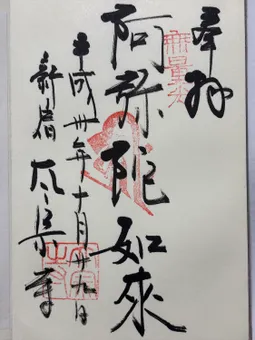 奉拝
無量光
阿弥陀如来
平成卅年十月廿九日
新宿 太宗寺